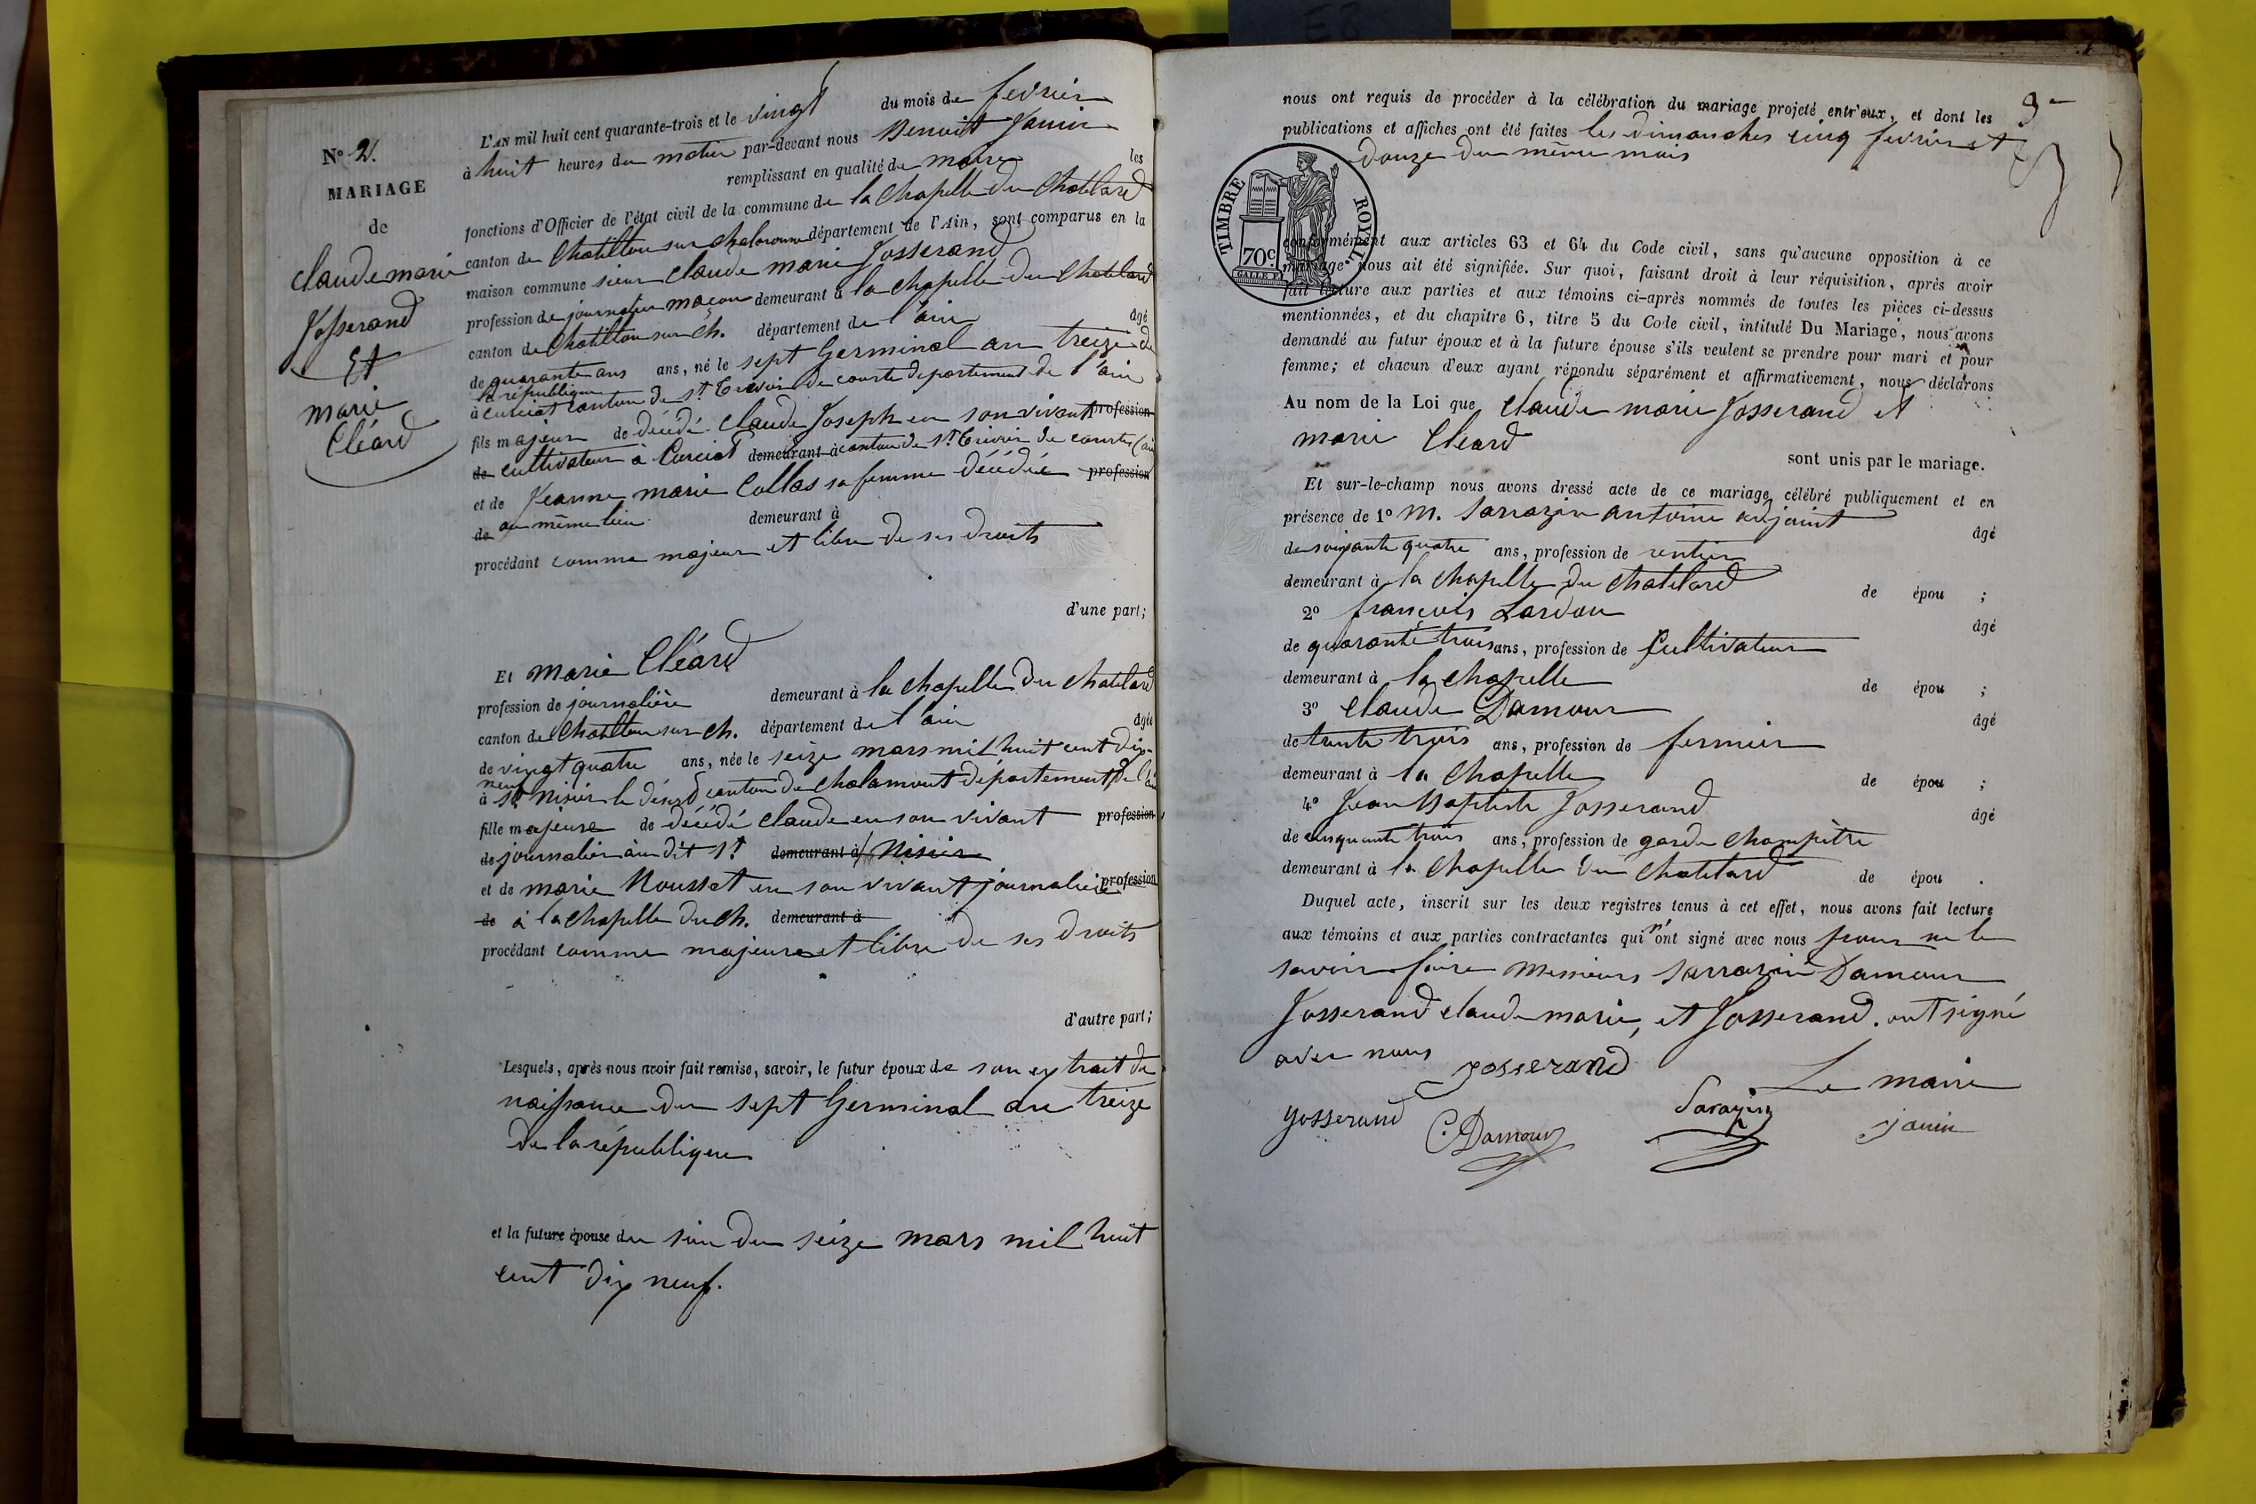 E8
N° 2.
MARIAGE
de
Claude marie
Josserand
Et
marie
Cléard
L'AN mil huit cent quarante-trois et le vingt du mois de fevrier
à huit heures du matin par-devant nous Benoit Janin
remplissant en qualité de maire les
fonctions d'Officier de l'état civil de la commune de la Chapelle du Chatelard
canton de Chatillon sur Chalaronne département de l'Ain, sont comparus en la
maison commune sieur Claude marie Josserand
profession de journalier maçon demeurant à la chapelle du Chatelard
canton de Chatillon sur Ch. département de l'ain âgé
de quarante ans ans, né le sept Germinal an treize de
la république
à curciat canton de St Trivier de courte departement de l'ain
fils majeur de décédé Claude Joseph en son vivant profession
de cultivateur a Curciat demeurant à canton de St Trivier de courte (ain
et de Jeanne marie Collas sa femme décédée profession
de au même lieu demeurant à
procédant comme majeur et libre de ses droits
d'une part;
Et marie Cléard
profession de journalière demeurant à la chapelle du chatelard
canton de Chatillon sur Ch. département de l'ain âgée
de vingt quatre ans, née le seize mars mil huit cent dix-
neuf
à St Nisier le désert canton de Chalamont département de l'ain
fille majeure de décédé claude en son vivant profession
de journalier au dit St demeurant à Nisier
et de marie Rousset en son vivant journalière profession
de à la chapelle du Ch. demeurant à
procédant comme majeure et libre de ses droits
d'autre part;
Lesquels, après nous avoir fait remise, savoir, le futur époux de son extrait de
naissance du sept Germinal an treize
de la république
et la future épouse du sien du seize mars mil huit
cent dix neuf.
3
nous ont requis de procéder à la célébration du mariage projeté entr'eux, et dont les
publications et affiches ont été faites les dimanches cinq fevrier et
douze du même mois
TIMBRE ROYAL
70c
conformément aux articles 63 et 64 du Code civil, sans qu'aucune opposition à ce
mariage nous ait été signifiée. Sur quoi, faisant droit à leur réquisition, après avoir
fait lecture aux parties et aux témoins ci-après nommés de toutes les pièces ci-dessus
mentionnées, et du chapitre 6, titre 5 du Code civil, intitulé Du Mariage, nous avons
demandé au futur époux et à la future épouse s'ils veulent se prendre pour mari et pour
femme; et chacun d'eux ayant répondu séparément et affirmativement, nous déclarons
Au nom de la Loi que Claude marie Josserand et
marie Cléard
sont unis par le mariage.
Et sur-le-champ nous avons dressé acte de ce mariage célébré publiquement et en
présence de 1° M. Sarrazin antoine adjoint âgé
de soixante quatre ans, profession de rentier
demeurant à la chapelle du chatelard de épou ;
2° françois Lardon âgé
de quarante trois ans, profession de Cultivateur
demeurant à la chapelle de épou ;
3° Claude Damour âgé
de trente trois ans, profession de fermier
demeurant à la Chapelle de épou ;
4° Jean Baptiste Josserand âgé
de cinquante trois ans, profession de garde champêtre
demeurant à la Chapelle du Chatelard de épou .
Duquel acte, inscrit sur les deux registres tenus à cet effet, nous avons fait lecture
aux témoins et aux parties contractantes qui n'ont signé avec nous pour ne le
savoir faire messieurs Sarrazin Damour
Josserand claude marie, et Josserand. ont signé
avec nous
josserand
Le maire
yosserand
C. Damour
Sarazin
janin